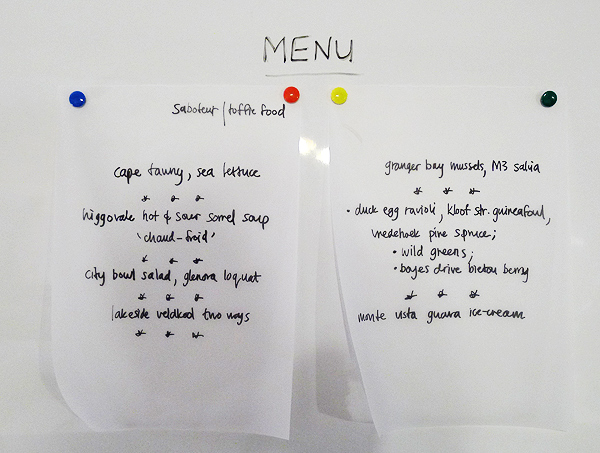 MENU
saboteur | toffie food
cape tawny, sea lettuce
* * *
higgovale hot & sour sorrel soup
'chaud-froid'
* * *
city bowl salad, glenora loquat
* * *
lakeside veldkool two ways
* * *
granger bay mussels, M3 salvia
* * *
• duck egg ravioli, kloof str. guineafowl,
vredehoek pine spruce;
• wild greens;
• boyes drive bietou berry
* * *
monte vista guava ice-cream